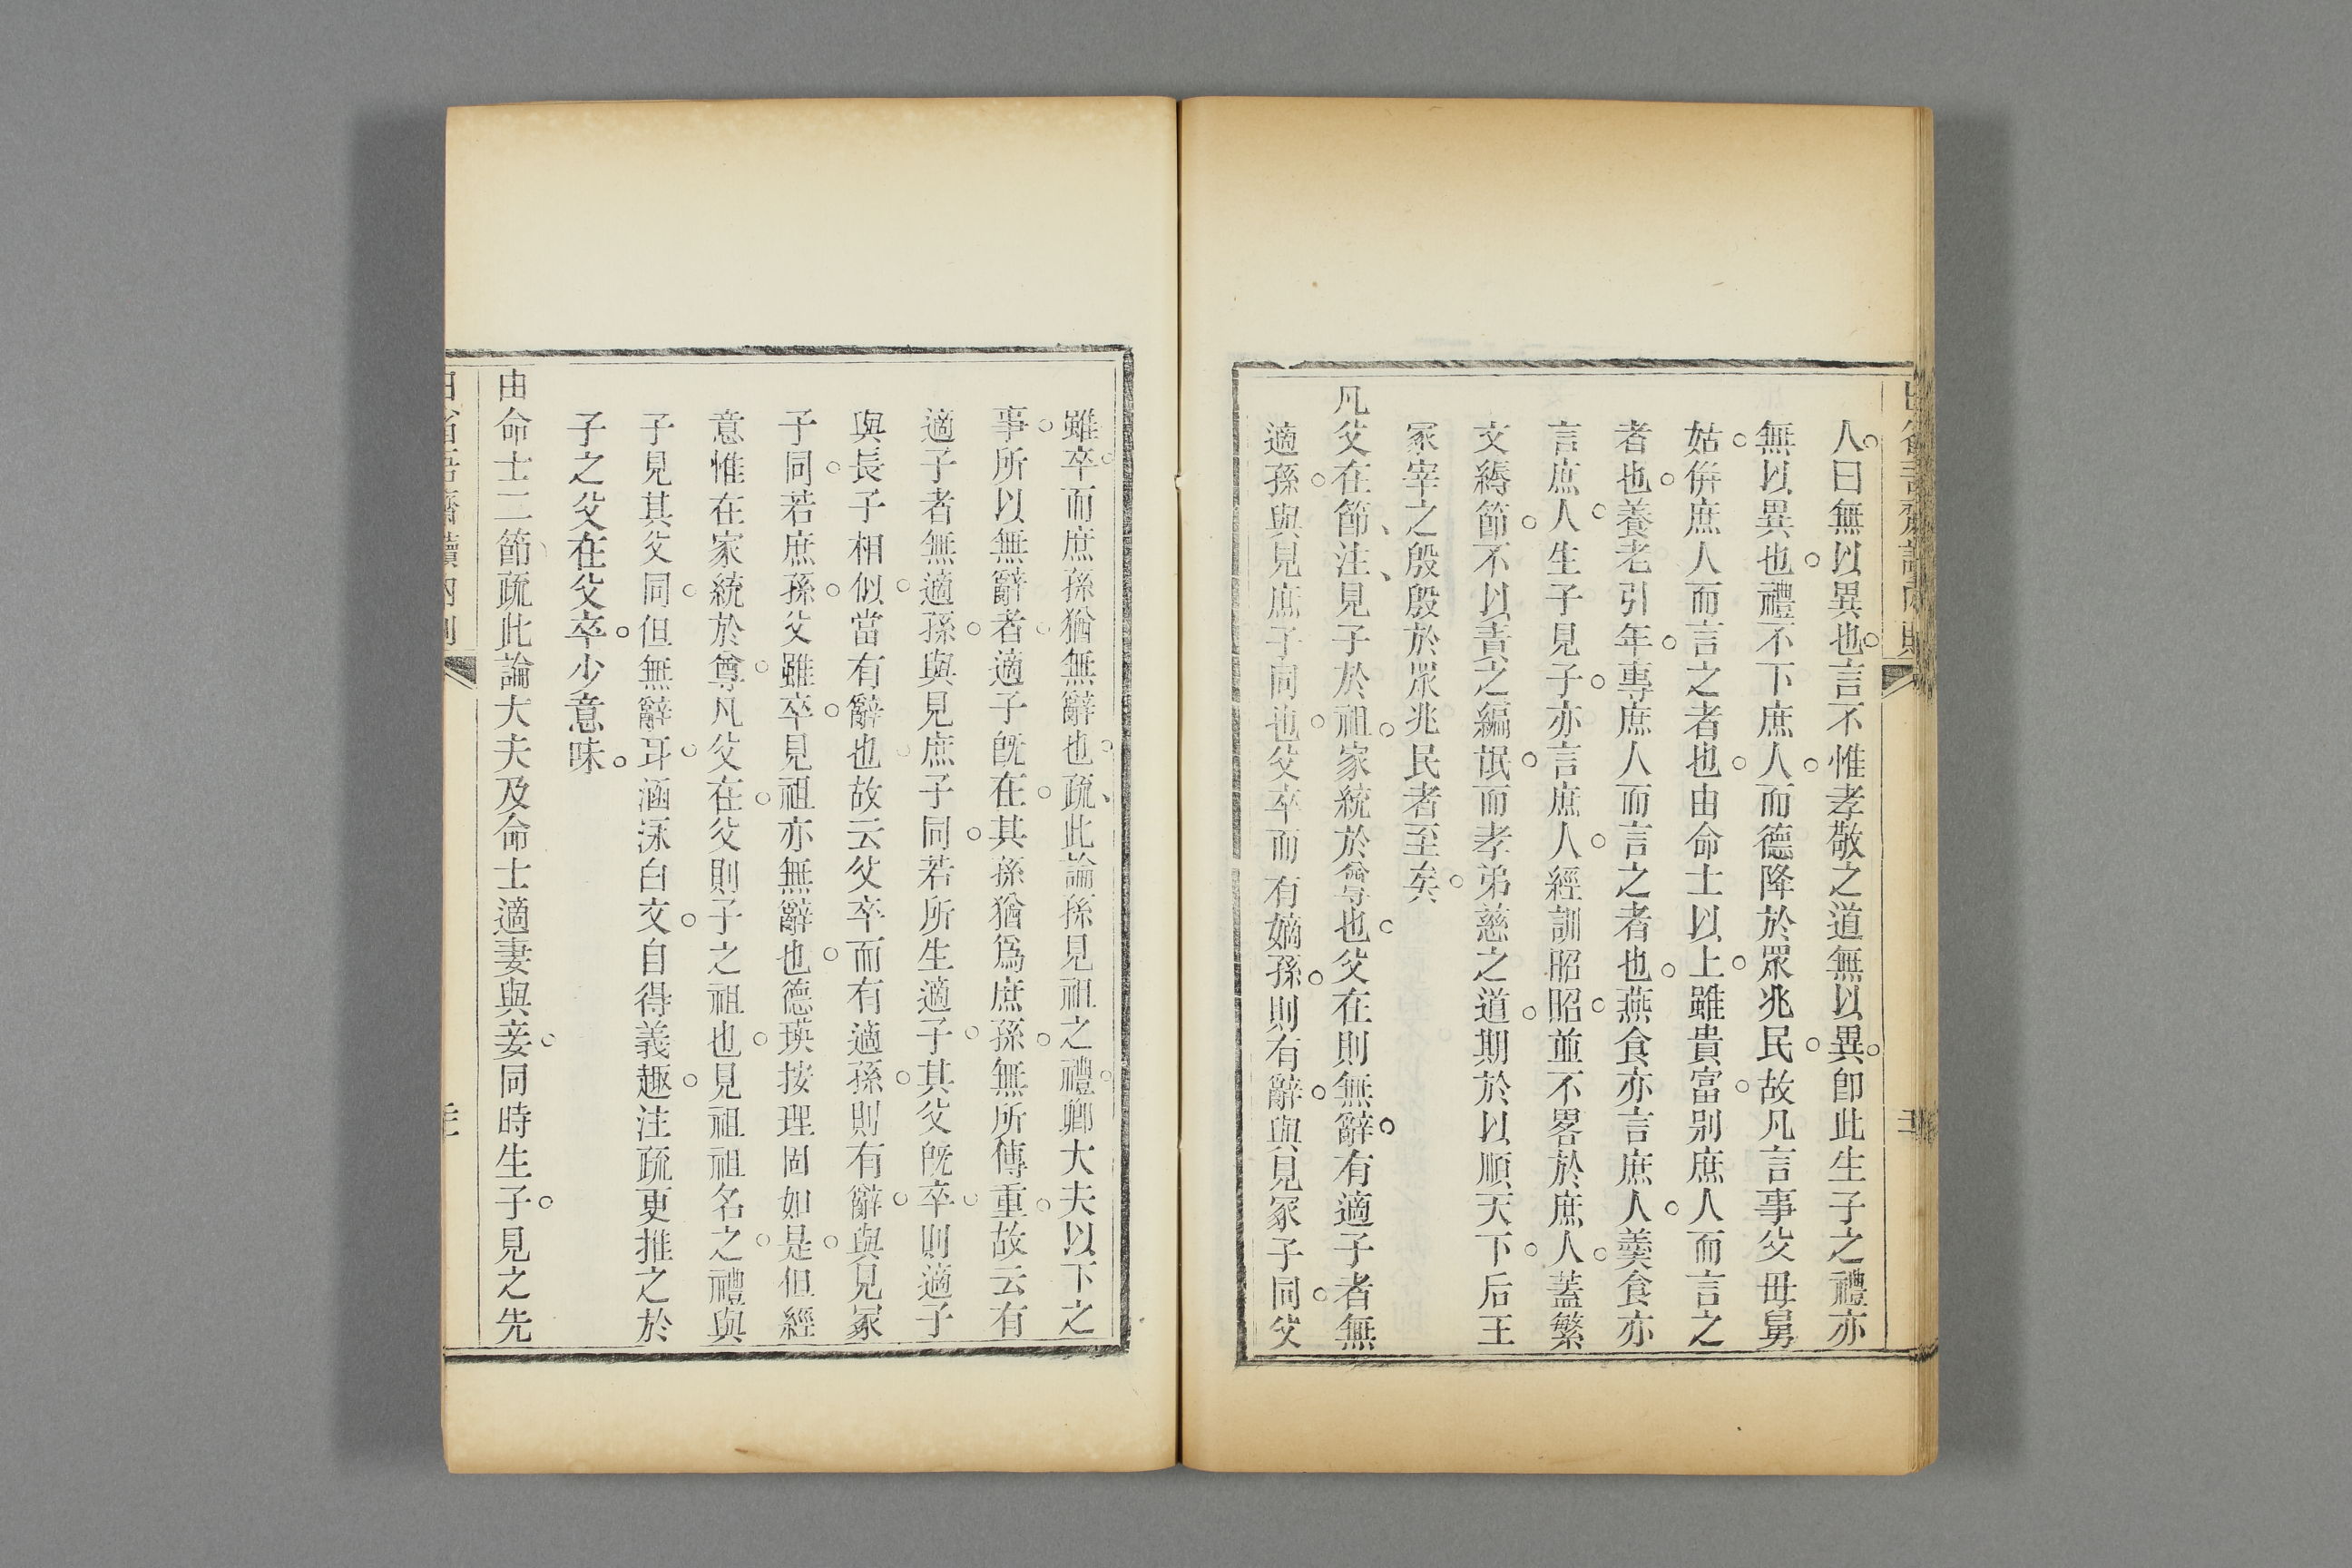 人曰無以異也言不惟孝敬之道無以異卽此生子之禮亦
無以異也禮不下庶人而德降於眾兆民故凡言事父母舅
姑併庶人而言之者也由命士以上雖貴富別庶人而言之
者也養老引年專庶人而言之者也燕食亦言庶人羹食亦
言庶人生子見子亦言庶人經訓昭昭並不畧於庶人蓋繁
文縟節不以責之編氓而孝弟慈之道期於以順天下后王
冢宰之殷殷於眾兆民者至矣
凡父在節注見子於祖家統於尊也父在則無辭有適子者無
適孫與見庶子同也父卒而有嫡孫則有辭與見冢子同父
雖卒而庶孫猶無辭也疏此論孫見祖之禮卿大夫以下之
事所以無辭者適子旣在其孫猶爲庶孫無所傳重故云有
適子者無適孫與見庶子同若所生適子其父旣卒則適子
與長子相似當有辭也故云父卒而有適孫則有辭與見冢
子同若庶孫父雖卒見祖亦無辭也德瑛按理固如是但經
意惟在家統於尊凡父在父則子之祖也見祖祖名之禮與
子見其父同但無辭耳涵泳白文自得義趣注疏更推之於
子之父在父卒少意味
由命士二節疏此論大夫及命士適妻與妾同時生子見之先